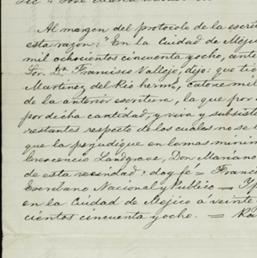 Al margen del protocolo de la escrit
esta razon: "En la Ciudad de Méjic
mil ochocientos cincuenta y ocho, ante
Francisco Vallejo, dijo: que tie
Martinez del Rio herms, catorce mil
de la anterior escritura, la que por
por dicha cantidad, y viva y subsiste
restantes respecto de los cuales no se
que la perjudique en lo mas mínim
Crescencio Landgrave, Don Mariano
de esta vecindad: doy fé = Franci
Escribano Nacional y Publico =
en la Ciudad de Mejico á veinte
cientos cincuenta y ocho. =